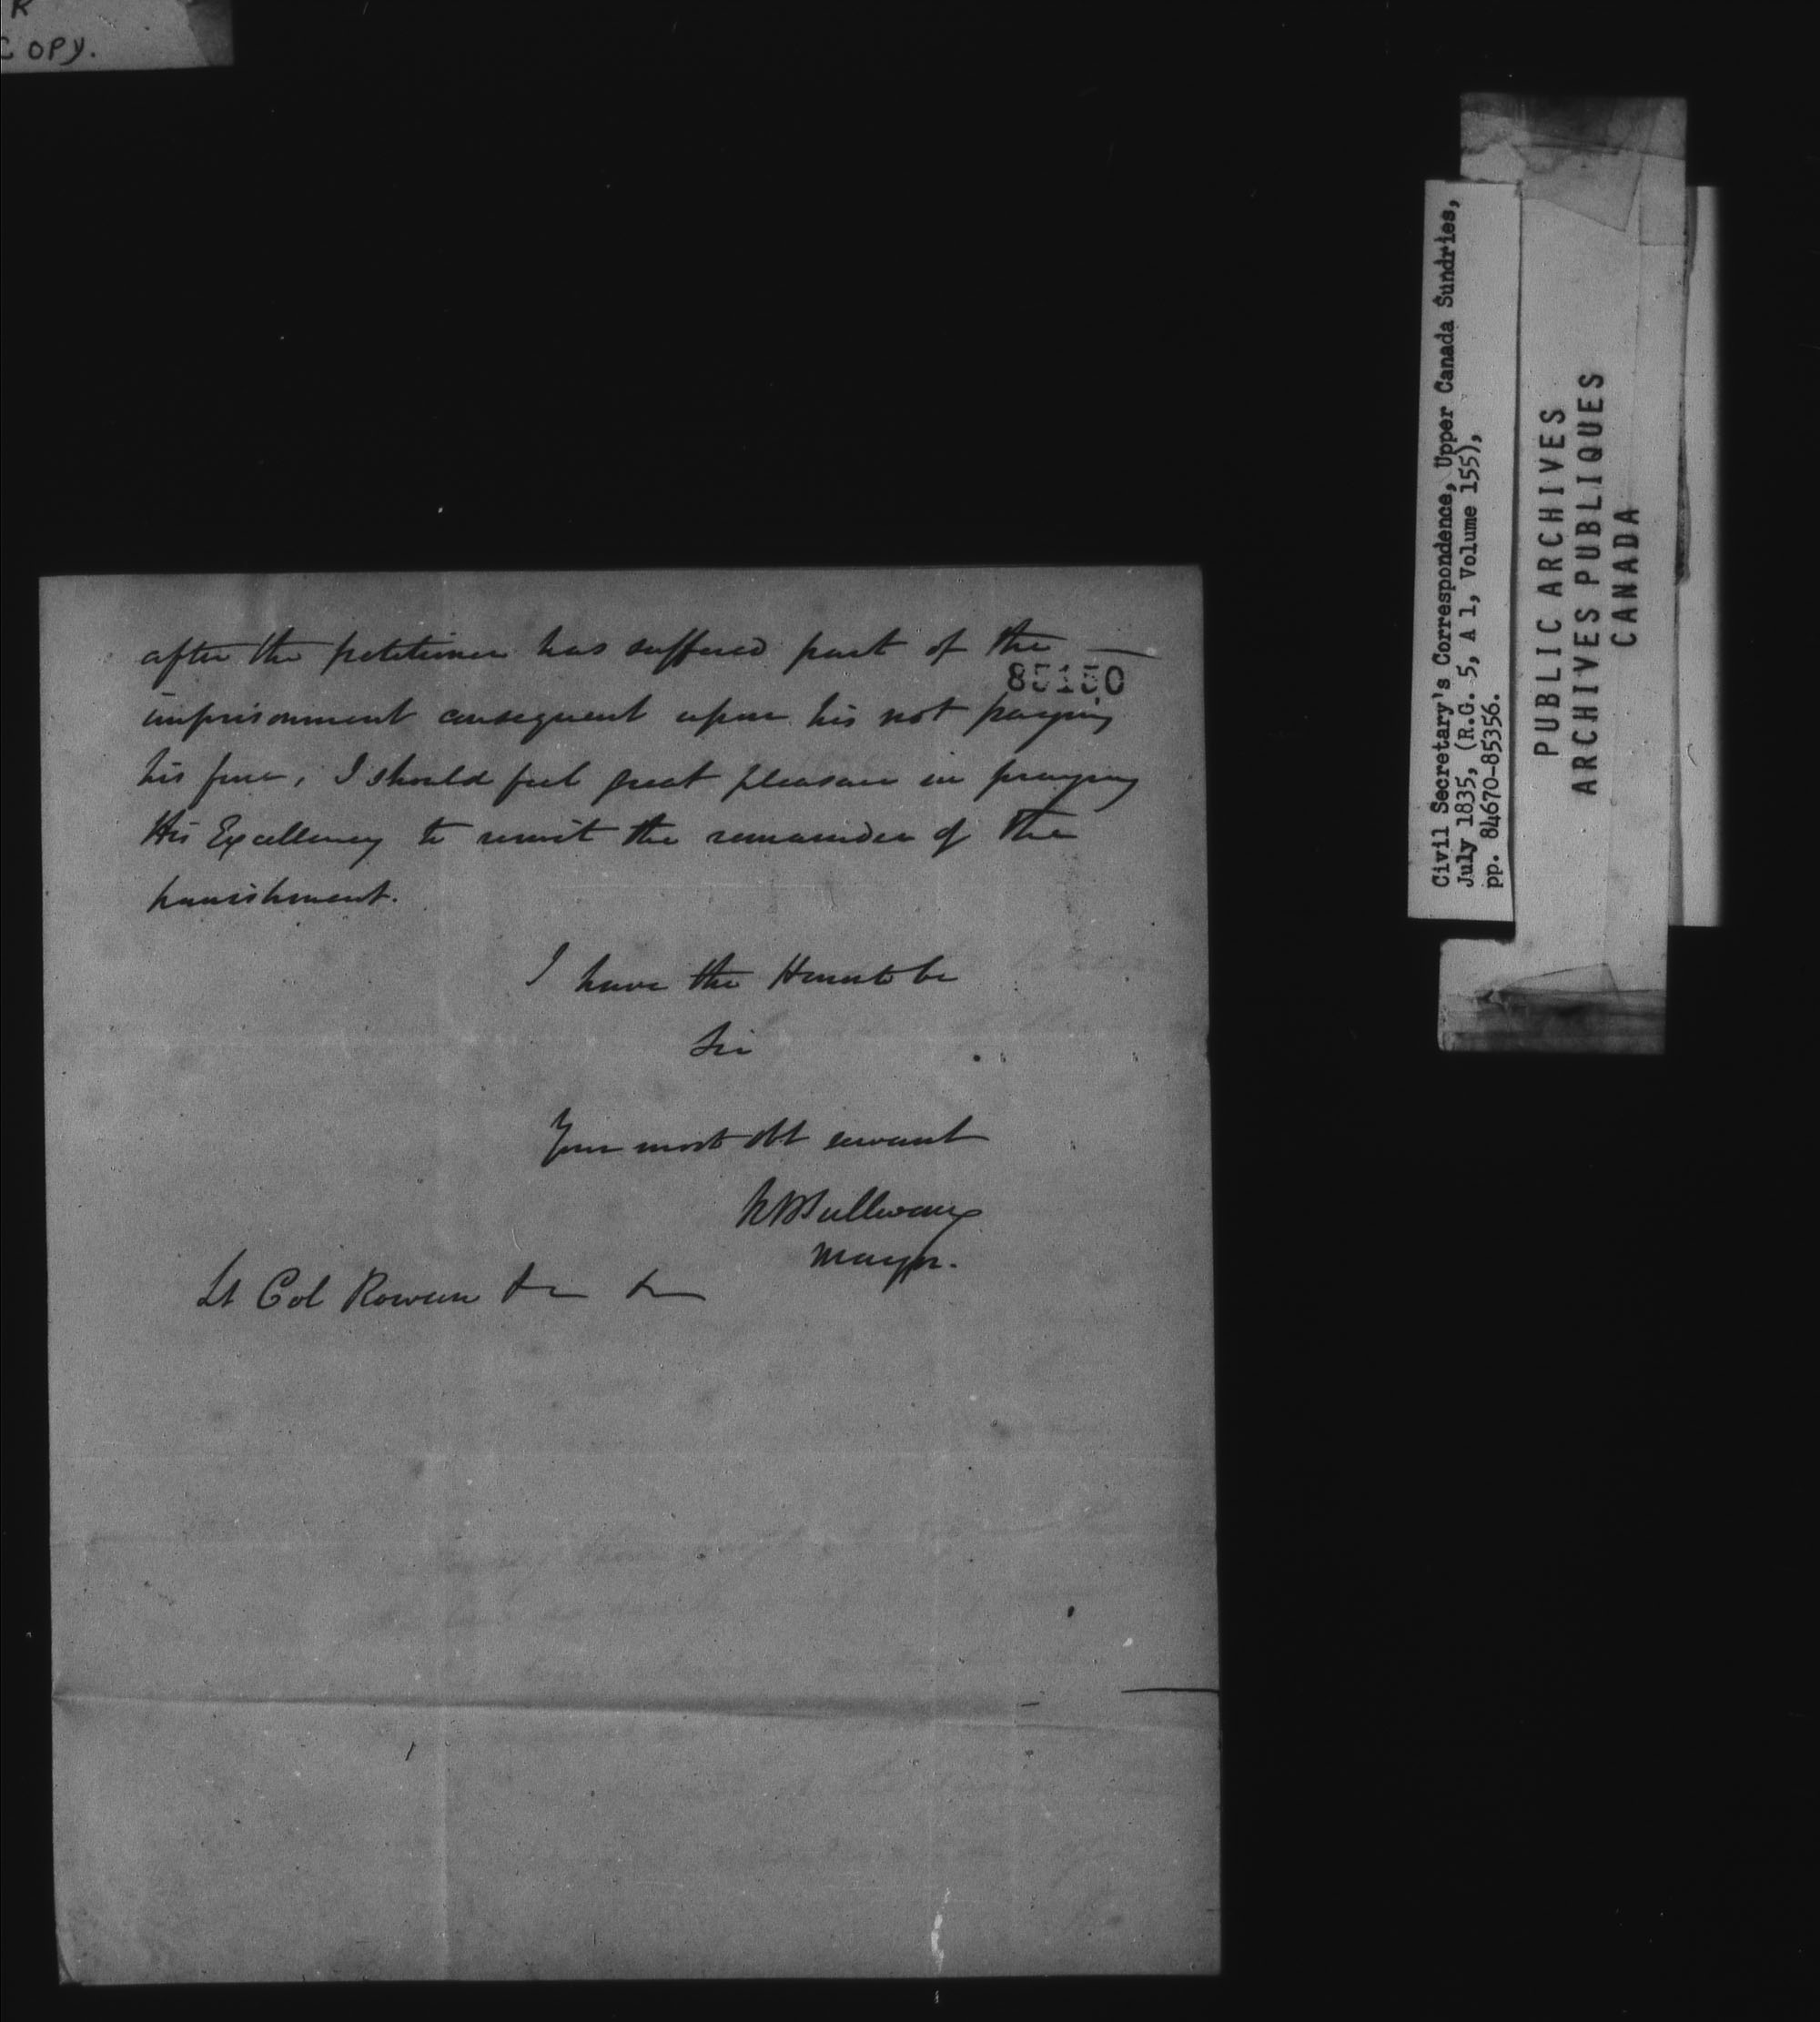 COPY.
after the petitioner has suffered part of the —
85150
imprisonment consequent upon his not paying
his fine, I should feel great pleasure in praying
His Excellency to remit the remainder of the
punishment.
I have the Honor to be
Sir
Your most obt servant
RBSullivan
Mayor.
Lt Col Rowan &c &c
Civil Secretary's Correspondence, Upper Canada Sundries,
July 1835, (R.G. 5, A 1, Volume 155),
pp. 84670-85356.
PUBLIC ARCHIVES
ARCHIVES PUBLIQUES
CANADA